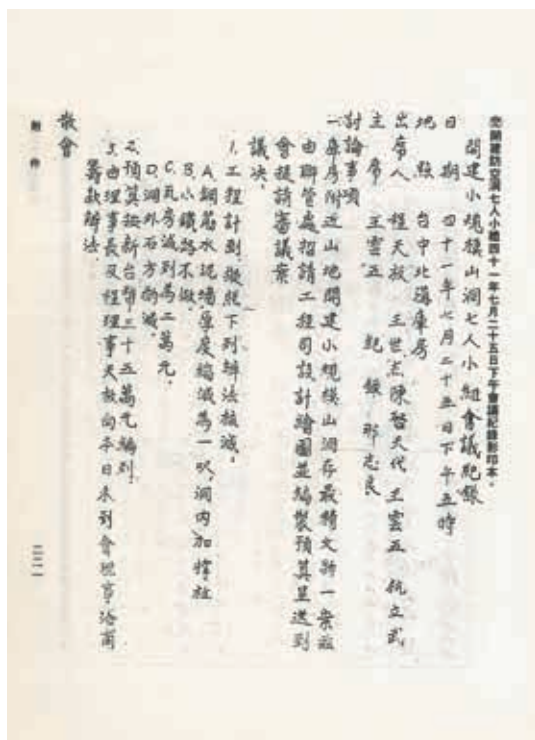 開建防空洞七人小組四十一年七月二十五日下午會議紀錄影印本。
開建小規模山洞七人小組會議紀錄
日期 四十一年七月二十五日下午五時
地點 台中北溝庫房
出席人 程天放 王世杰 陳啓天代 王雲五 杭立武
主席 王雲五 紀錄 那志良
討論事項
一、庫房附近山地開建小規模山洞存最精文物一案經
由聯管處招請工程司設計繪圖並編製預算呈送到
會提請審議案
議決、
1.工程計劃、擬照下列辦法核減。
A.鋼筋水泥牆厚度縮減為一呎、洞內加撐柱
B.小鐵路不做。
C.瓦房減到為二萬元。
D.洞外石方酌減。
2.預算按新台幣三十五萬元編列。
3.由理事長及程理事天放向本日未到會理事洽商
籌款辦法。
散會
附件